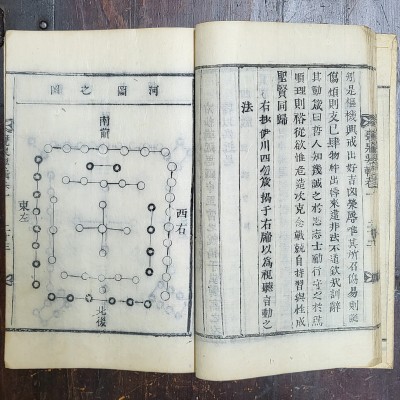 矧是樞機興戎出好吉凶榮辱惟其所召傷易則誕
傷煩則支已肆物忤出悖來違非法不道欽哉訓辭
其動箴曰哲人知幾誠之於思志士勵行守之於爲
順理則裕從欲惟危造次克念戰兢自持習與性成
聖賢同歸
右抄伊川四勿箴揭于右牖以爲視聽言動之
法
河圖之圖
南前
西右
東左
北後